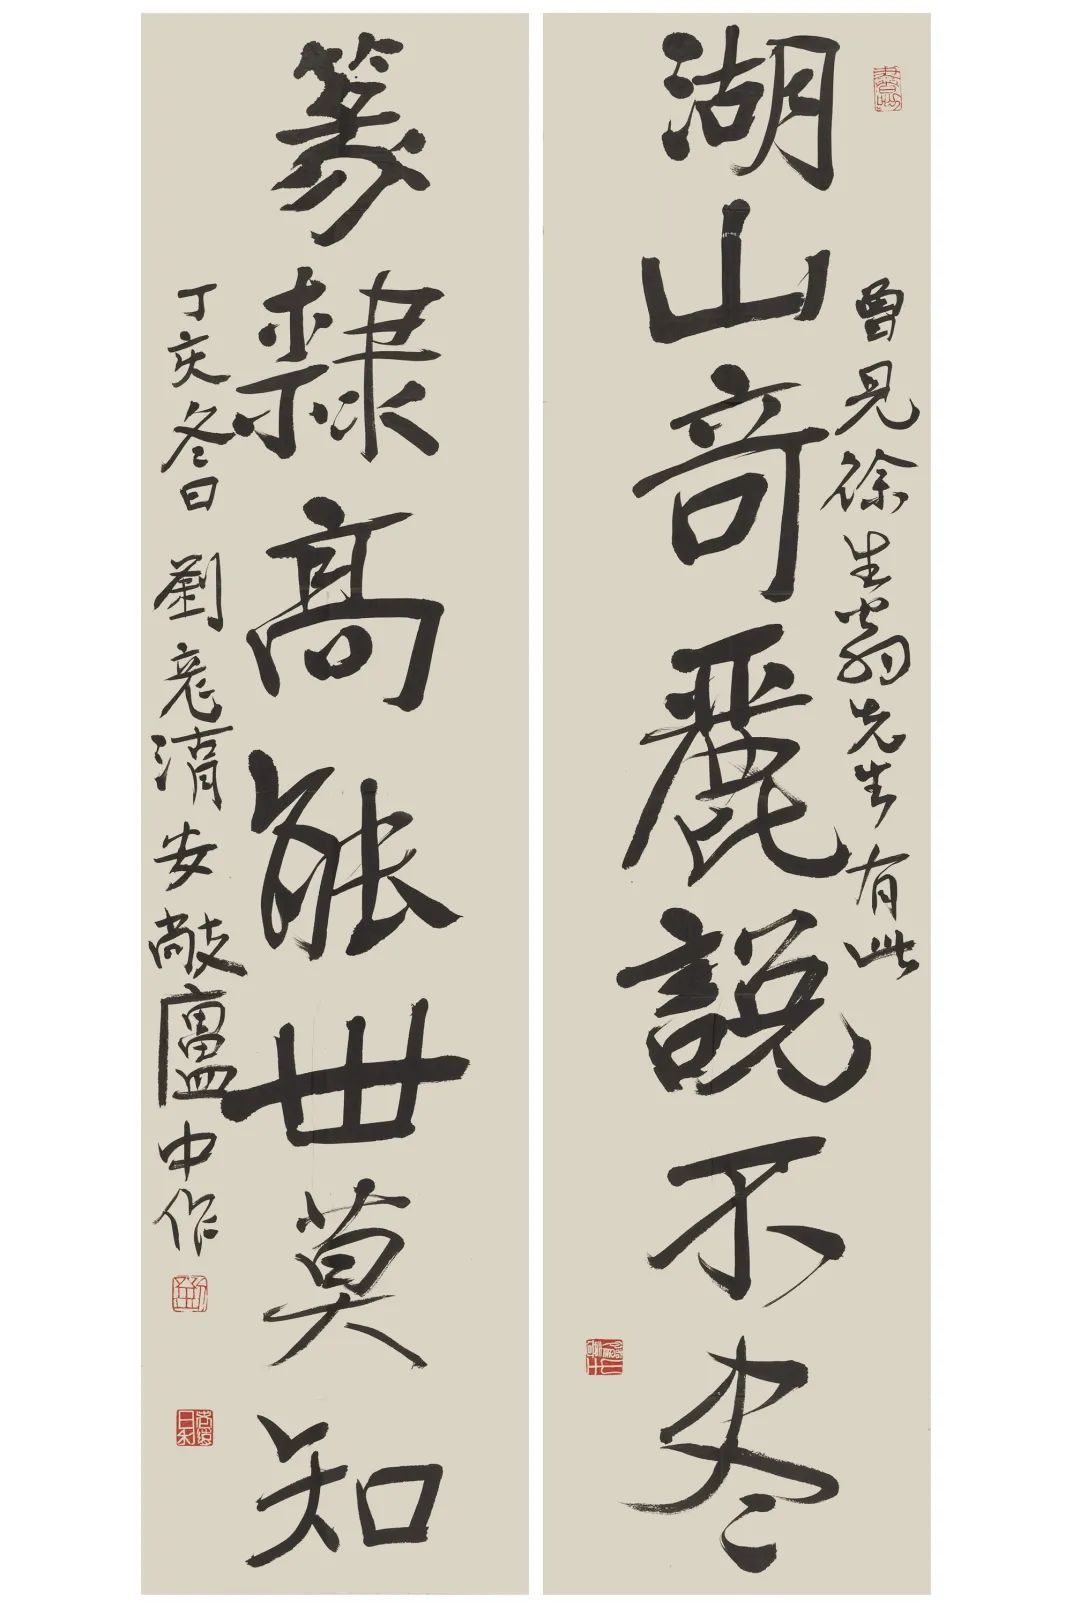 湖山奇麗說不尽
曾見徐生翁先生有此
篆隸高能世莫知
丁亥冬日 劉彥湖安敞廬中作